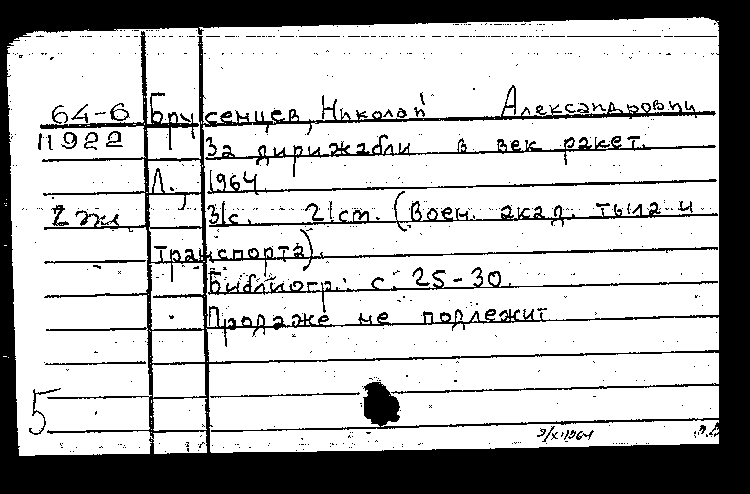 64-6 Брусенцев, Николай Александрович
11922 За дирижабли в век ракет.
Л., 1964
2 экз 31с. 21см. (Воен. акад. тыла и
транспорта).
Библиогр.: с. 25-30.
Продаже не подлежит
5
9/X-1964